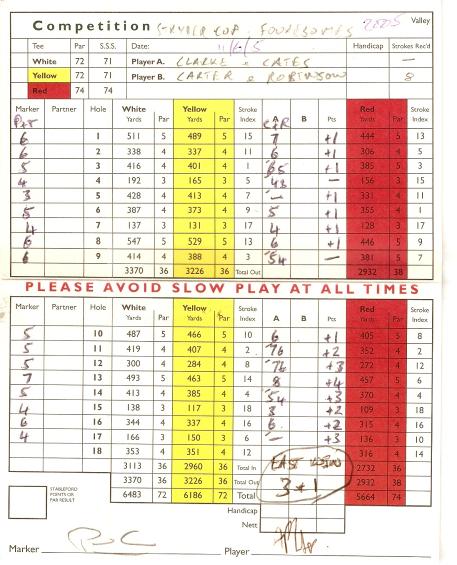 Competition SNYDER CUP FOURSOMES 2005 Valley
Tee Par S.S.S. Date: 11/6/5 Handicap Strokes Rec'd
White 72 71 Player A. CLARKE & CATES —
Yellow 72 71 Player B. CARTER & ROBINSON 8
Red 74 74
Marker Partner Hole White Yards Par Yellow Yards Par Stroke Index A B Pts Red Yards Par Stroke Index
C+R
6 1 511 5 489 5 15 7 +1 444 5 13
6 2 338 4 337 4 11 6 +1 306 4 5
5 3 416 4 401 4 1 65 +1 385 5 3
4 4 192 3 165 3 5 43 — 156 3 15
3 5 428 4 413 4 7 — +1 331 4 11
5 6 387 4 373 4 9 5 +1 355 4 1
4 7 137 3 131 3 17 4 +1 128 3 17
6 8 547 5 529 5 13 6 +1 446 5 9
6 9 414 4 388 4 3 54 — 381 5 7
3370 36 3226 36 Total Out 2932 38
PLEASE AVOID SLOW PLAY AT ALL TIMES
Marker Partner Hole White Yards Par Yellow Yards Par Stroke Index A B Pts Red Yards Par Stroke Index
5 10 487 5 466 5 10 6 +1 405 5 8
5 11 419 4 407 4 2 76 +2 352 4 2
5 12 300 4 284 4 8 +3 272 4 12
7 13 493 5 463 5 14 8 +4 457 5 6
5 14 413 4 385 4 4 54 +3 370 4 4
4 15 138 3 117 3 18 3 +2 109 3 18
6 16 344 4 337 4 16 6 +2 315 4 16
4 17 166 3 150 3 6 — +3 136 3 10
18 353 4 351 4 12 316 4 14
3113 36 2960 36 Total In 2732 36
3370 36 3226 36 Total Out 2932 38
6483 72 6186 72 Total 5664 74
3+1
STABLEFORD POINTS OR PAR RESULT
Handicap
Nett
Marker Player